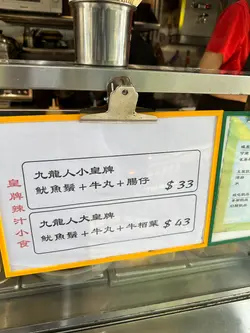 皇牌辣汁小食
九龍人小皇牌
魷魚鬚＋牛丸＋腸仔 $33
九龍人大皇牌
魷魚鬚＋牛丸＋牛栢葉 $43